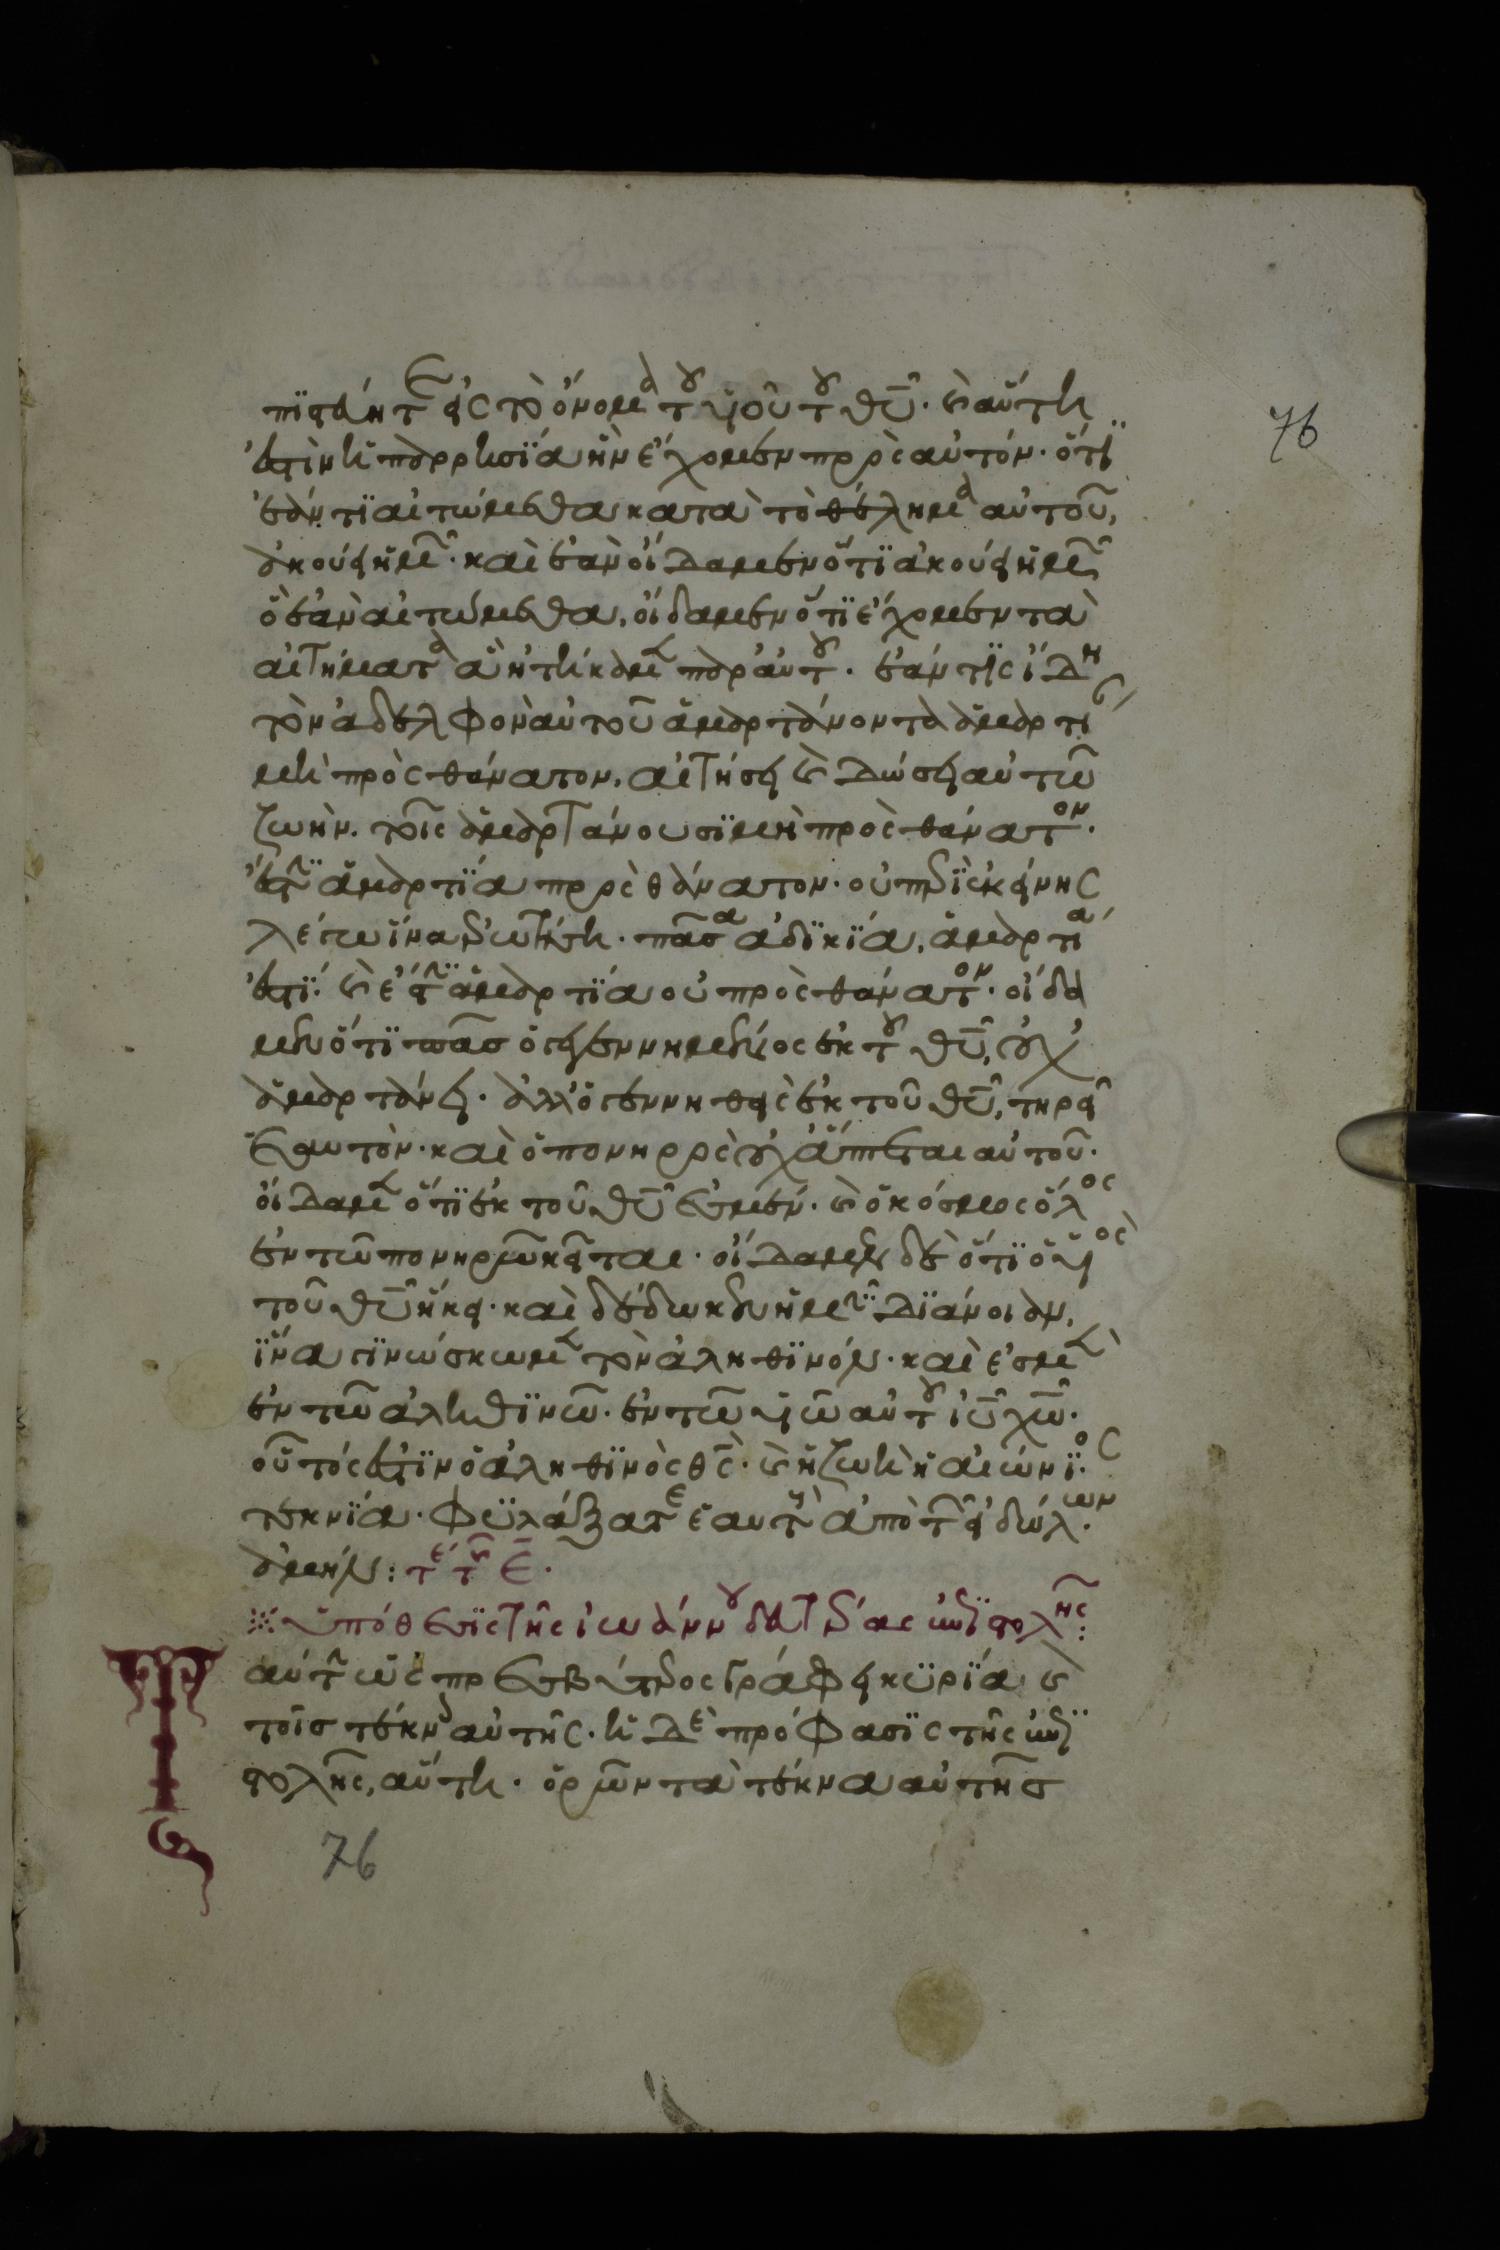 76
πϊστεύητε εἰς τὸ ὄνομα τοῦ υἱοῦ τοῦ θῦ· καὶ αὕτη
ἐστὶν ἡ παρρησϊα ἣν ἔχομεν πρὸς αὐτόν· ὅτϊ
ἐάν τϊ αἰτώμεθα κατὰ τὸ θέλημα αὐτοῦ,
ἀκούει ἡμῶν· καὶ ἐὰν οἴδαμεν ὅτϊ ἀκούει ἡμῶν
ὃ ἐὰν αἰτώμεθα, οἴδαμεν ὅτϊ ἔχομεν τὰ
αἰτήματα ἃ ἠτήκαμεν παρ' αὐτοῦ· ἐάν τϊς ἴδη
τὸν ἀδελφὸν αὐτοῦ ἁμαρτάνοντα ἁμαρτίαν
μὴ πρὸς θάνατον, αἰτήσει καὶ δώσει αὐτῶ
ζωὴν· τοῖς ἁμαρτάνουσϊ μὴ πρὸς θάνατον·
ἔστϊν ἁμαρτϊα πρὸς θάνατον· οὐ περὶ ἐκείνης
λέγω ἵνα ἐρωτήση· πᾶσα ἀδϊκϊα, ἁμαρτία
ἐστϊ· καὶ ἔστϊν ἁμαρτϊα οὐ πρὸς θάνατον· οἴδα
μεν ὅτϊ πᾶσ ὁ γεγεννημένος ἐκ τοῦ θῦ, οὐχ
ἁμαρτάνει· ἀλλ' ὁ γεννηθεὶς ἐκ τοῦ θῦ, τηρεῖ
ἑαυτὸν· καὶ ὁ πονηρὸς οὐχ ἅπτεται αὐτοῦ·
οἴδαμεν ὅτϊ ἐκ τοῦ θῦ ἐσμέν· καὶ ὁ κόσμος ὅλος
ἐν τῶ πονηρῶ κεῖται· οἴδαμεν δὲ ὅτϊ ὁ υἱὸς
τοῦ θῦ ἥκει· καὶ δέδωκεν ἡμῖν δϊάνοιαν,
ἵνα γϊνώσκωμεν τὸν ἀληθϊνόν· καὶ ἐσμὲν
ἐν τῶ ἀληθϊνῶ· ἐν τῶ υἱῶ αὐτοῦ ἰῦ χῶ·
οὗτός ἐστϊν ὁ ἀληθϊνὸς θς· καὶ ἡ ζωὴ ἡ αἰώνϊος·
τεκνϊα· φϋλάξατε ἑαυτοὺς ἀπὸ τῶν εἰδώλων·
ἀμήν: τέ τῆς ε·
※ ὑπόθεσϊς τῆς ἰωάννου δευτέρας ἐπϊστολῆς:
Ταύτην ὡς πρεσβύτερος γράφει κϋρϊα καὶ
τοῖσ τέκνοις αὐτῆς· ἡ δὲ πρόφασϊς τῆς ἐπϊ
στολῆς, αὕτη· ὁρῶν τὰ τέκνα αὐτῆσ
76